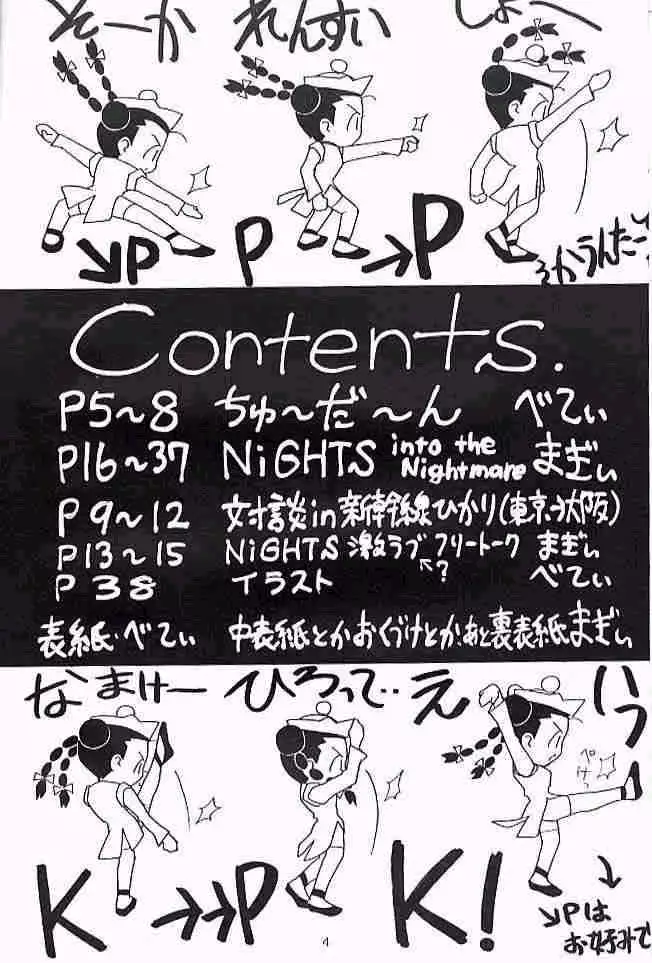 そーか れんすい しょー
↘P P →P
そかうんたーん
Contents.
P5～8 ちゅ～だ～ん べてぃ
P16～37 NiGHTS into the Nightmare まぎぃ
P9～12 対談in新幹線ひかり(東京→大阪)
P13～15 NiGHTS 激ラブフリートーク まぎぃ
←?
P38 イラスト べてぃ
表紙・べてぃ 中表紙とかおくづけとか、あと裏表紙まぎぃ
なまけー ひろって‥ え いっ
ぺけっ
K →→P K!
↓
↘Pは
お好みで
4